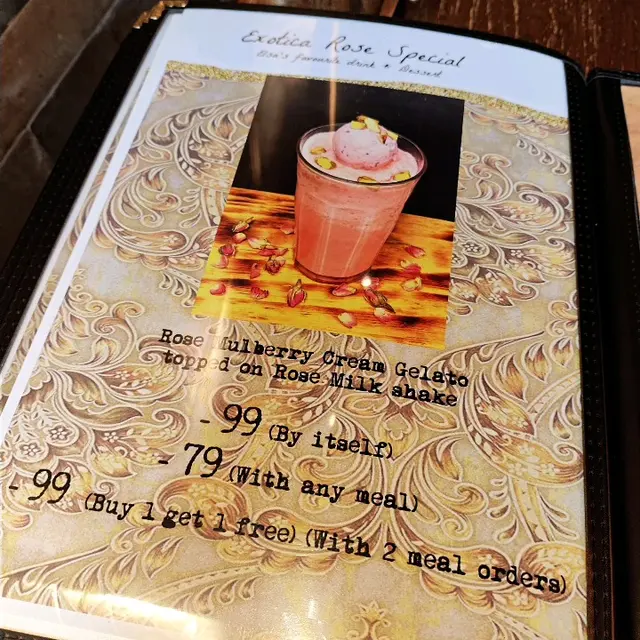 Exotica Rose Special
favourite drink + Dessert
Rose Mulberry Cream Gelato
topped on Rose Milk shake
- 99 (By itself)
- 79 (With any meal)
- 99 (Buy 1 get 1 free) (With 2 meal orders)